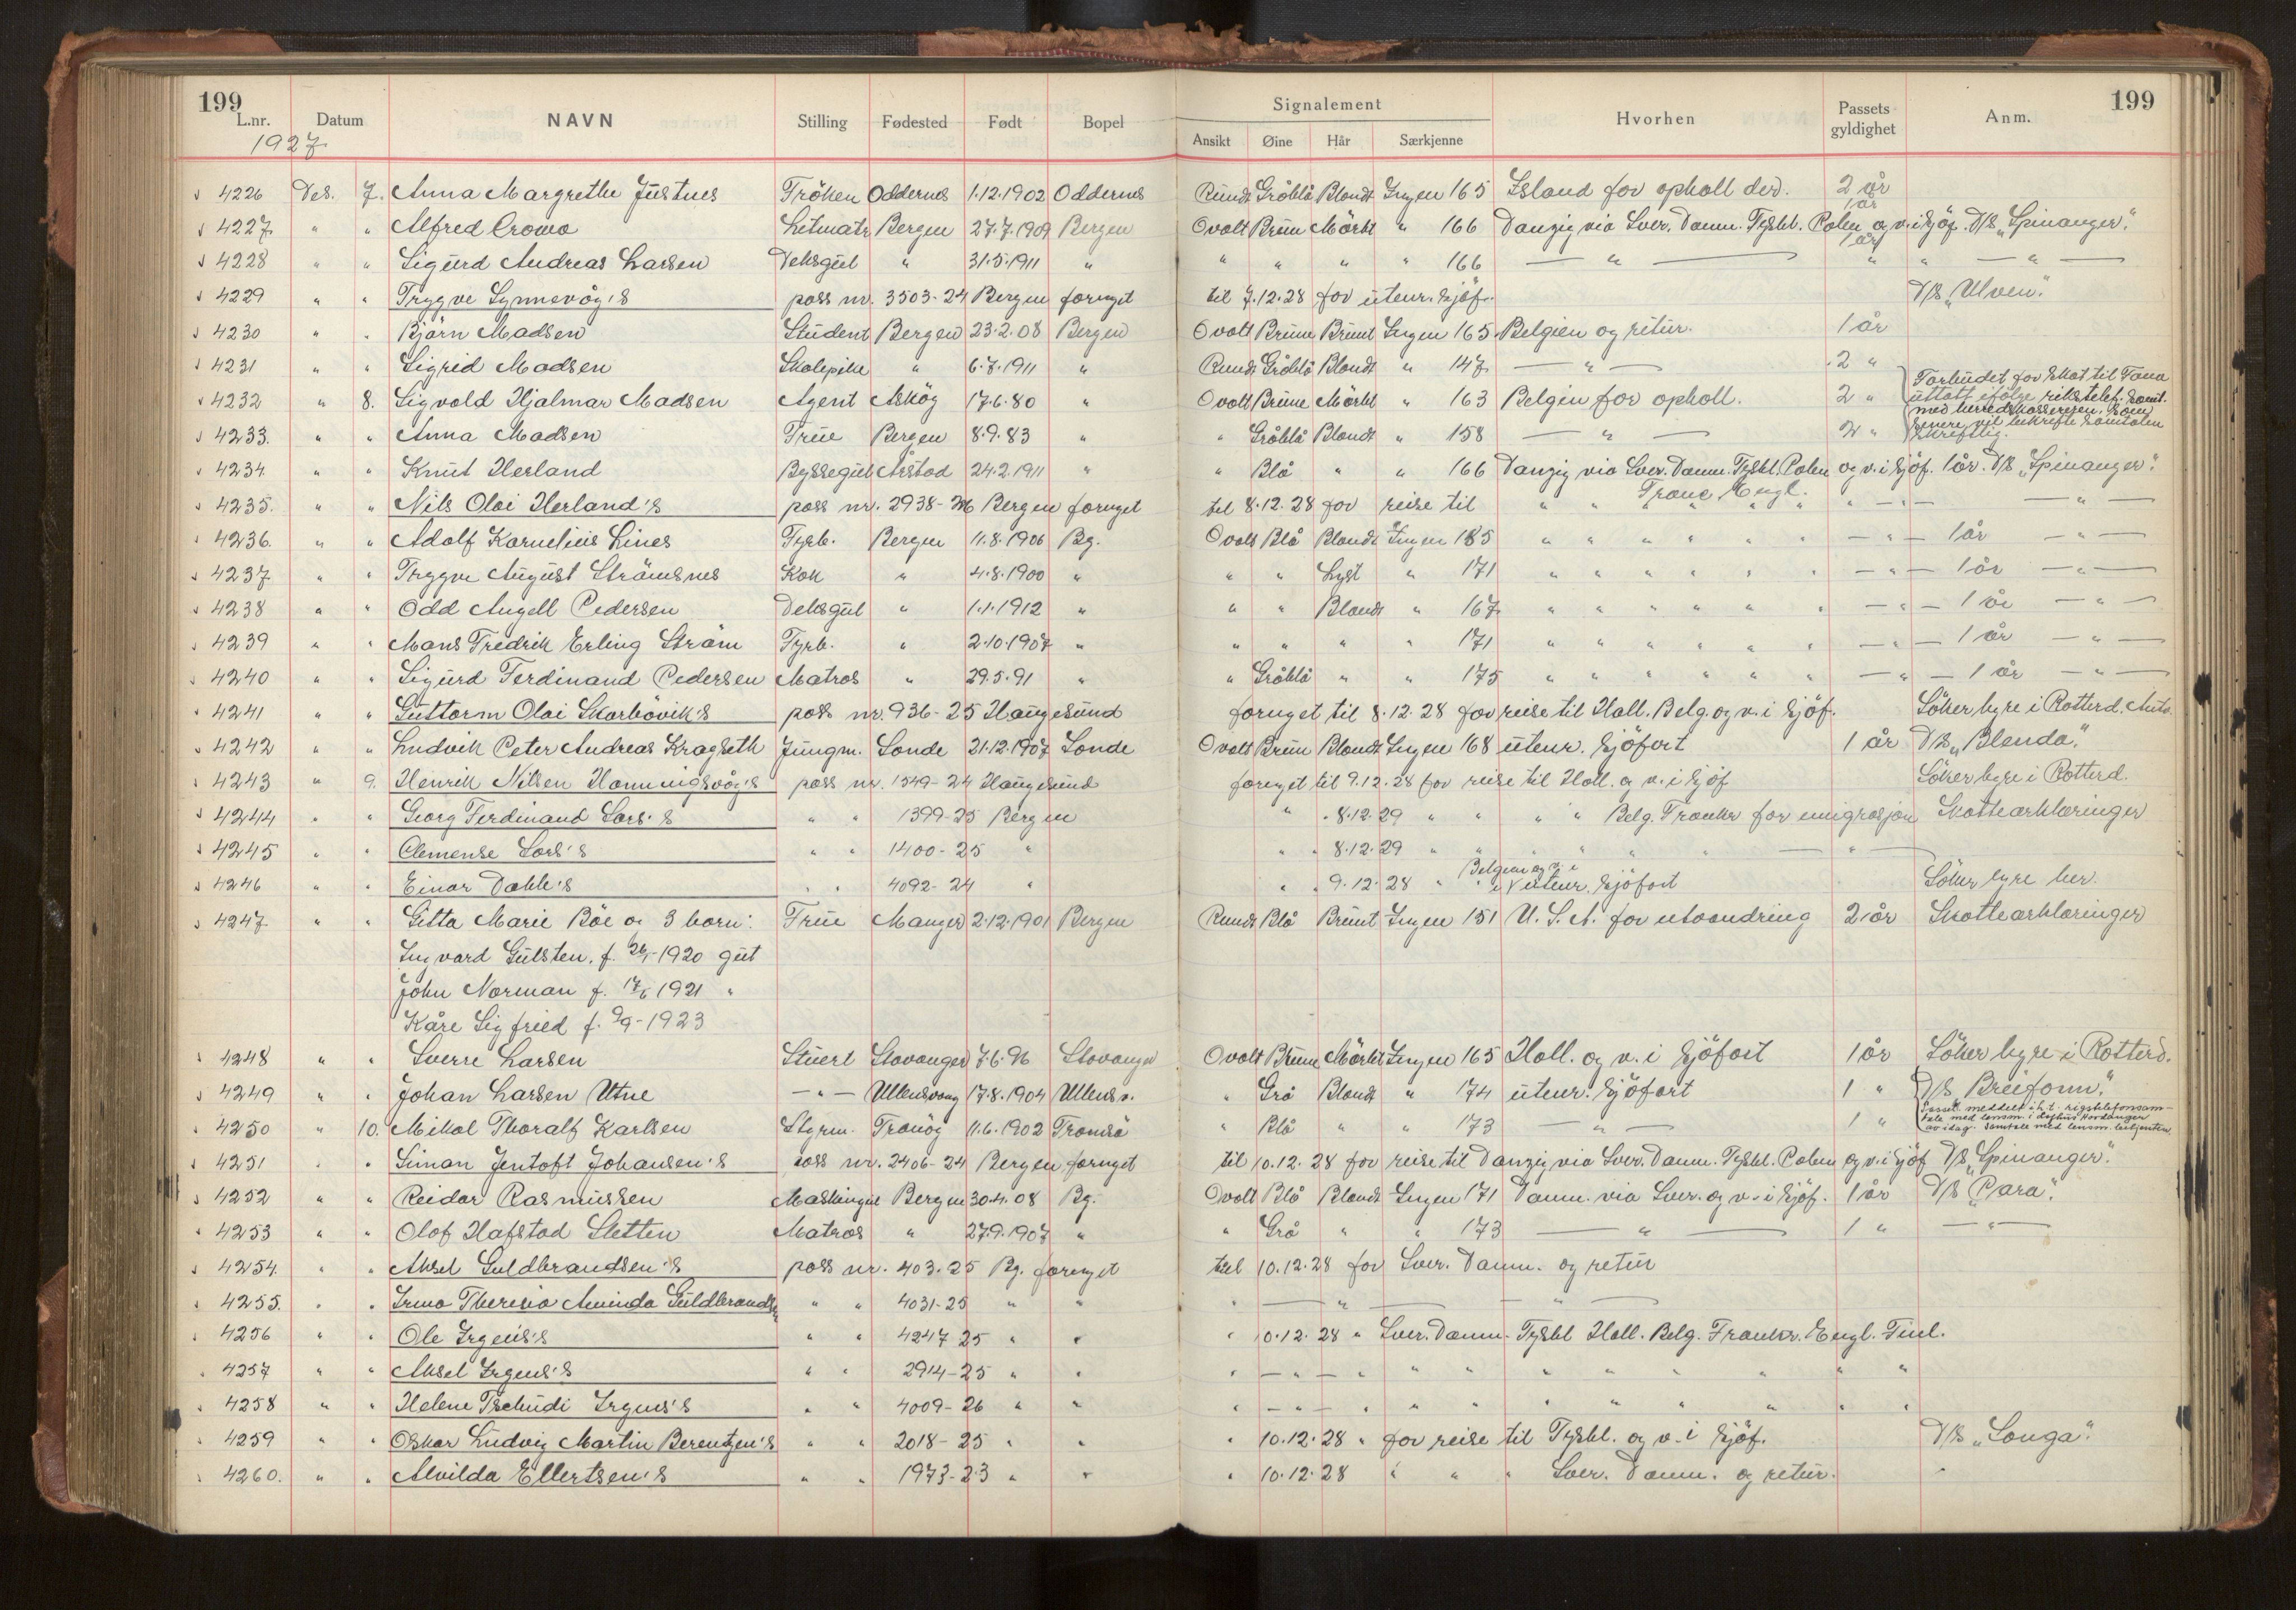 199
L.nr. Datum NAVN Stilling Fødested Født Bopel Signalement Ansikt Øine Hår Særkjenne Hvorhen Passets gyldighet Anm. 199
1927
4226 Des. 7. Anna Margrethe Justnes Fröken Oddernes 1.12.1902 Oddernes Rundt Gråblå Blondt Ingen 165 Island for ophold der. 2 år
4227 " " Alfred Bergen 27.7.1909 Bergen Ovalt Brun Mörkt " 166 Danzig via Sver. Danm. Tyskl. Polen og v. i Sjöf. 1 år D/S "Spinanger".
4228 " " Sigurd Andreas Larsen Deksgut " 31.5.1911 " " " " " 166 — " — 1 år " " — " —
4229 " " Trygve Synnevåg's pass nr. 3503-24 Bergen fornyet til 7.12.28 for utenr. Sjöf. D/S "Ulven".
4230 " " Björn Madsen Student Bergen 23.2.08 Bergen Ovalt Brune Brunt Ingen 165 Belgien og retur. 1 år
4231 " " Sigrid Madsen Skolepike " 6.8.1911 " Rundt Gråblå Blondt " 147 — " — 2 "
4232 " 8. Sigvald Hjalmar Madsen Agent Askøy 17.6.80 " Ovalt Brune Mörkt " 163 Belgien for ophold. 2 " Forbudet for Skat til Fana
uttatt ifölge rikstelef. samt.
med herredskassereren. Som
senere vil bekrefte samtalen
skriftlig.
4233. " " Anna Madsen Frue Bergen 8.9.83 " " Gråblå Blondt " 158 — " — 2 "
4234 " " Knut Herland Byssegut Årstad 24.2.1911 " " Blå " " 166 Danzig via Sver. Danm. Tyskl. Polen og v. i Sjöf. 1 år. D/S "Spinanger".
4235. " " Nils Olai Herland's pass nr. 2938-26 Bergen fornyet til 8.12.28 for reise til " " " " " " — " — — " —
Franc. Engl.
4236. " " Adolf Kornelius Lines Fyrb. Bergen 11.8.1906 Bg. Ovalt Blå Blondt Ingen 185 " " " " " " — " — 1 år — " —
4237 " " Trygve August Strömsnes Kok " 4.8.1900 " " " Lyst " 171 " " " " " " — " — 1 år — " —
4238 " " Odd Angell Pedersen Deksgut " 1.1.1912 " " " Blondt " 167 " " " " " " — " — 1 år — " —
4239 " " Mons Fredrik Erling Ström Fyrb. " 2.10.1907 " " " " " 171 " " " " " " — " — 1 år — " —
4240 " " Sigurd Ferdinand Pedersen Matros " 29.5.91 " " Gråblå " " 175 " " " " " " — " — 1 år — " —
4241 " " Guttorm Olai Skorbövik's pass nr. 936-25 Haugesund fornyet til 8.12.28 for reise til Holl. Belg. og v. i Sjöf. Söker hyre i Rotterd. Antv.
4242 " " Ludvik Peter Andreas Kragseth Jungm. Sonde 21.12.1907 Sonde Ovalt Brun Blondt Ingen 168 utenr. Sjöfart 1 år D/S "Blenda".
4243 " 9. Henrik Nilsen Honningsvåg's pass nr. 1549-24 Haugesund fornyet til 9.12.28 for reise til Holl. og v. i Sjöf Söker hyre i Rotterd.
4244 " " Georg Ferdinand Lars's " " 1399-25 Bergen " " 8.12.29 " " " " Belg. Frankr for emigrasjon Skatteerklæringer
4245 " " Clemense Lars's " " 1400-25 " " " 8.12.29 " " " " " — " —
4246 " " Einar Dahle's " " 4092-24 " " " 9.12.28 " " Belgien og v. i utenr. Sjöfart Söker hyre her.
4247 " " Gitta Marie Böe og 3 barn: Frue Manger 2.12.1901 Bergen Rundt Blå Brunt Ingen 151 U.S.A. for utvandring 2 år Skatteerklæringer
Ingvard Gulsten. f. 26/1-1920 gut
John Norman f. 17/6 1921 "
Kåre Sigfried f. 9/9-1923
4248 " " Sverre Larsen Stuert Stavanger 7.6.96 Stavanger Ovalt Brune Mörkt Ingen 165 Holl. og v. i Sjöfart 1 år Söker hyre i Rotterd.
4249 " " Johan Larsen Utne — " — Ullensvang 17.8.1904 Ullensv. " Grå Blondt " 174 utenr. Sjöfart 1 " D/S "Breifonn".
4250 " 10. Mikal Thoralf Karlsen Styrm. Tranöy 11.6.1902 Tromsö " Blå " " 173 — " — 1 " Passet meddelt i h.t. rigstelefonsam-
tale med lensm. i Hardanger
av idag. Samtale med lensm. betjenten
4251 " " Simon Jentoft Johansen's pass nr. 2406-24 Bergen fornyet til 10.12.28 for reise til Danzig via Sver. Danm. Tyskl. Polen og v. i Sjöf D/S "Spinanger".
4252 " " Reidar Rasmussen Maskingut Bergen 30.4.08 Bg. Ovalt Blå Blondt Ingen 171 Danm. via Sver. og v. i Sjöf. 1 år D/S "Para".
4253 " " Olof Hafstad Sletten Matros " 27.9.1907 " " Grå " " 173 — " — 1 " — " —
4254. " " Aksel Guldbrandsen's pass nr. 403-25 Bg. fornyet til 10.12.28 for Sver. Danm. og retur
4255. " " Irma Theresia Aminda Guldbrandsen " " 4031-25 " " " — " — — " —
4256 " " Ole Irgens's " " 4247 25 " " " 10.12.28 " Sver. Danm. Tyskl Holl. Belg. Frankr. Engl. Finl.
4257 " " Aksel Irgens's " " 2914-25 " " " — " — " " " " " " " " "
4258 " " Helene Tschudi Irgens's " " 4009-26 " " " — " — " " " " " " " " "
4259 " " Oskar Ludvig Martin Berentzen's " " 2018-25 " " " 10.12.28 " for reise til Tyskl. og v. i Sjöf. D/S "Songa".
4260. " " Alvilda Ellertsen's " " 1973-23 " " " 10.12.28 " " " Sver. Danm. og retur.